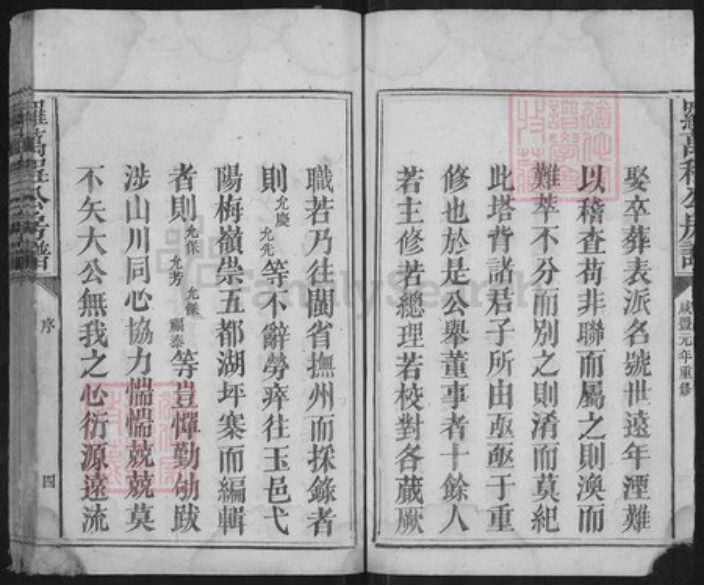 娶卒葬表派名號世遠年湮難
以稽查苟非聯而屬之則渙而
難萃不分而別之則淆而莫紀
此塔背諸君子所由亟亟于重
修也於是公舉董事者十餘人
若主修若總理若校對各蕆厥
咸豐元年重修
職若乃往閩省撫州而採錄者
則允慶允先等不辭勞瘁往玉邑弋
陽梅嶺崇五都湖坪寨而編輯
者則允保允芳允傑福泰等豈憚勤劬跋
涉山川同心協力惴惴兢兢莫
不矢大公無我之心衍源遠流
序
四
FamilySearch